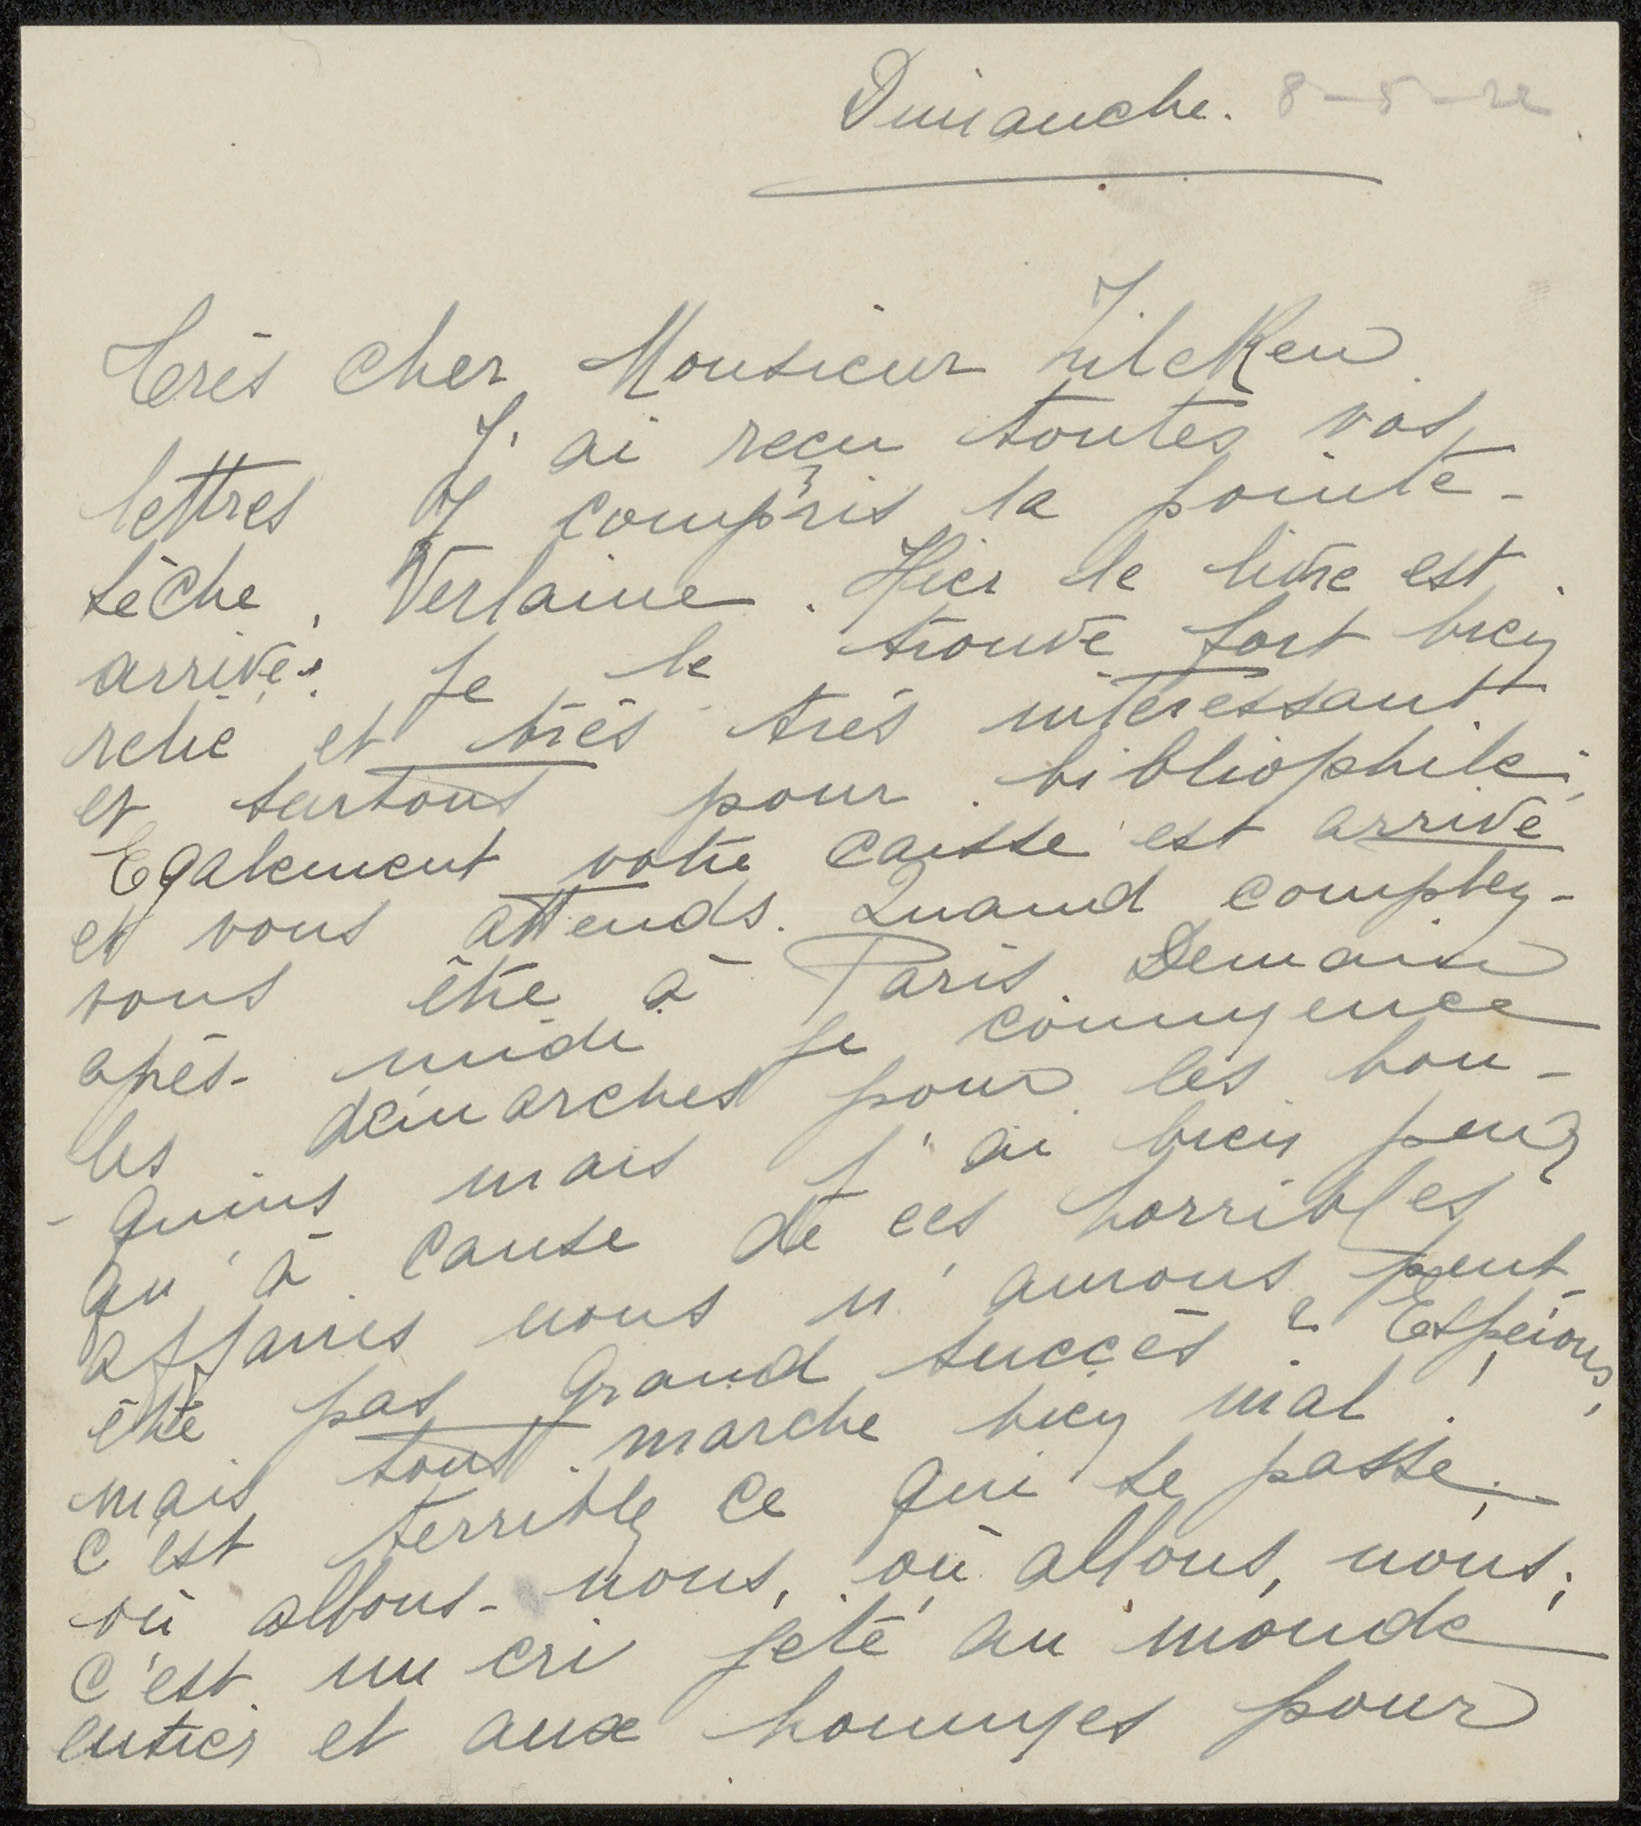 Dimanche. 8-5-22
Très cher Monsieur Zilcken
J'ai reçu toutes vos
lettres y compris la pointe-
sèche, Verlaine. Hier le livre est
arrivé. Je le trouve fort bien
relié et très très intéressant
et surtout pour bibliophile;
Egalement votre caisse est arrivé
et vous attends. Quand comptez-
vous être à Paris. Demain
après-midi je commence
les démarches pour les bou-
-quins mais j'ai bien peur
qu'à cause de ces horribles
affaires nous n'aurons peut
être pas grand succès? Espérons,
mais tout marche bien mal!
c'est terrible ce qui se passe.
où allons-nous, où allons, nous;
c'est un cri jeté au monde
entier et aux hommes pour